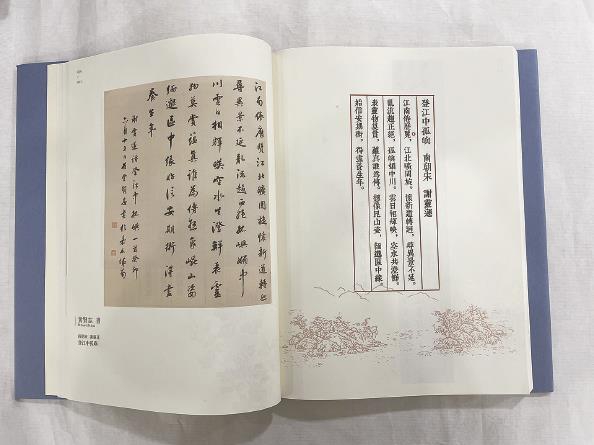 江南倦歷覽江北曠周旋懷新道轉迥
尋異景不延亂流趨正絕孤嶼媚中
川雲日相輝映空水共澄鮮表靈
物莫賞蘊真誰為傳想像崑山姿
緬邈區中緣始信安期術得盡
養生年
謝靈運詩登江中孤嶼一首癸卯
六月
書
南朝宋 謝靈運
登江中孤嶼
登江中孤嶼 南朝宋 謝靈運
江南倦歷覽，江北曠周旋。懷新道轉迥，尋異景不延。
亂流趨正絕，孤嶼媚中川。雲日相輝映，空水共澄鮮。
表靈物莫賞，蘊真誰為傳。想像昆山姿，緬邈區中緣。
始信安期術，得盡養生年。